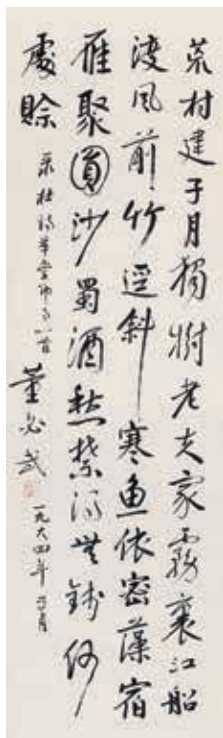 荒村建子月獨樹老夫家霧裏江船
渡風前竹逕斜寒魚依密藻宿
雁聚圓沙蜀酒愁禁得無錢何
處賒
录杜詩草堂即事一首
董必武
一九六四年